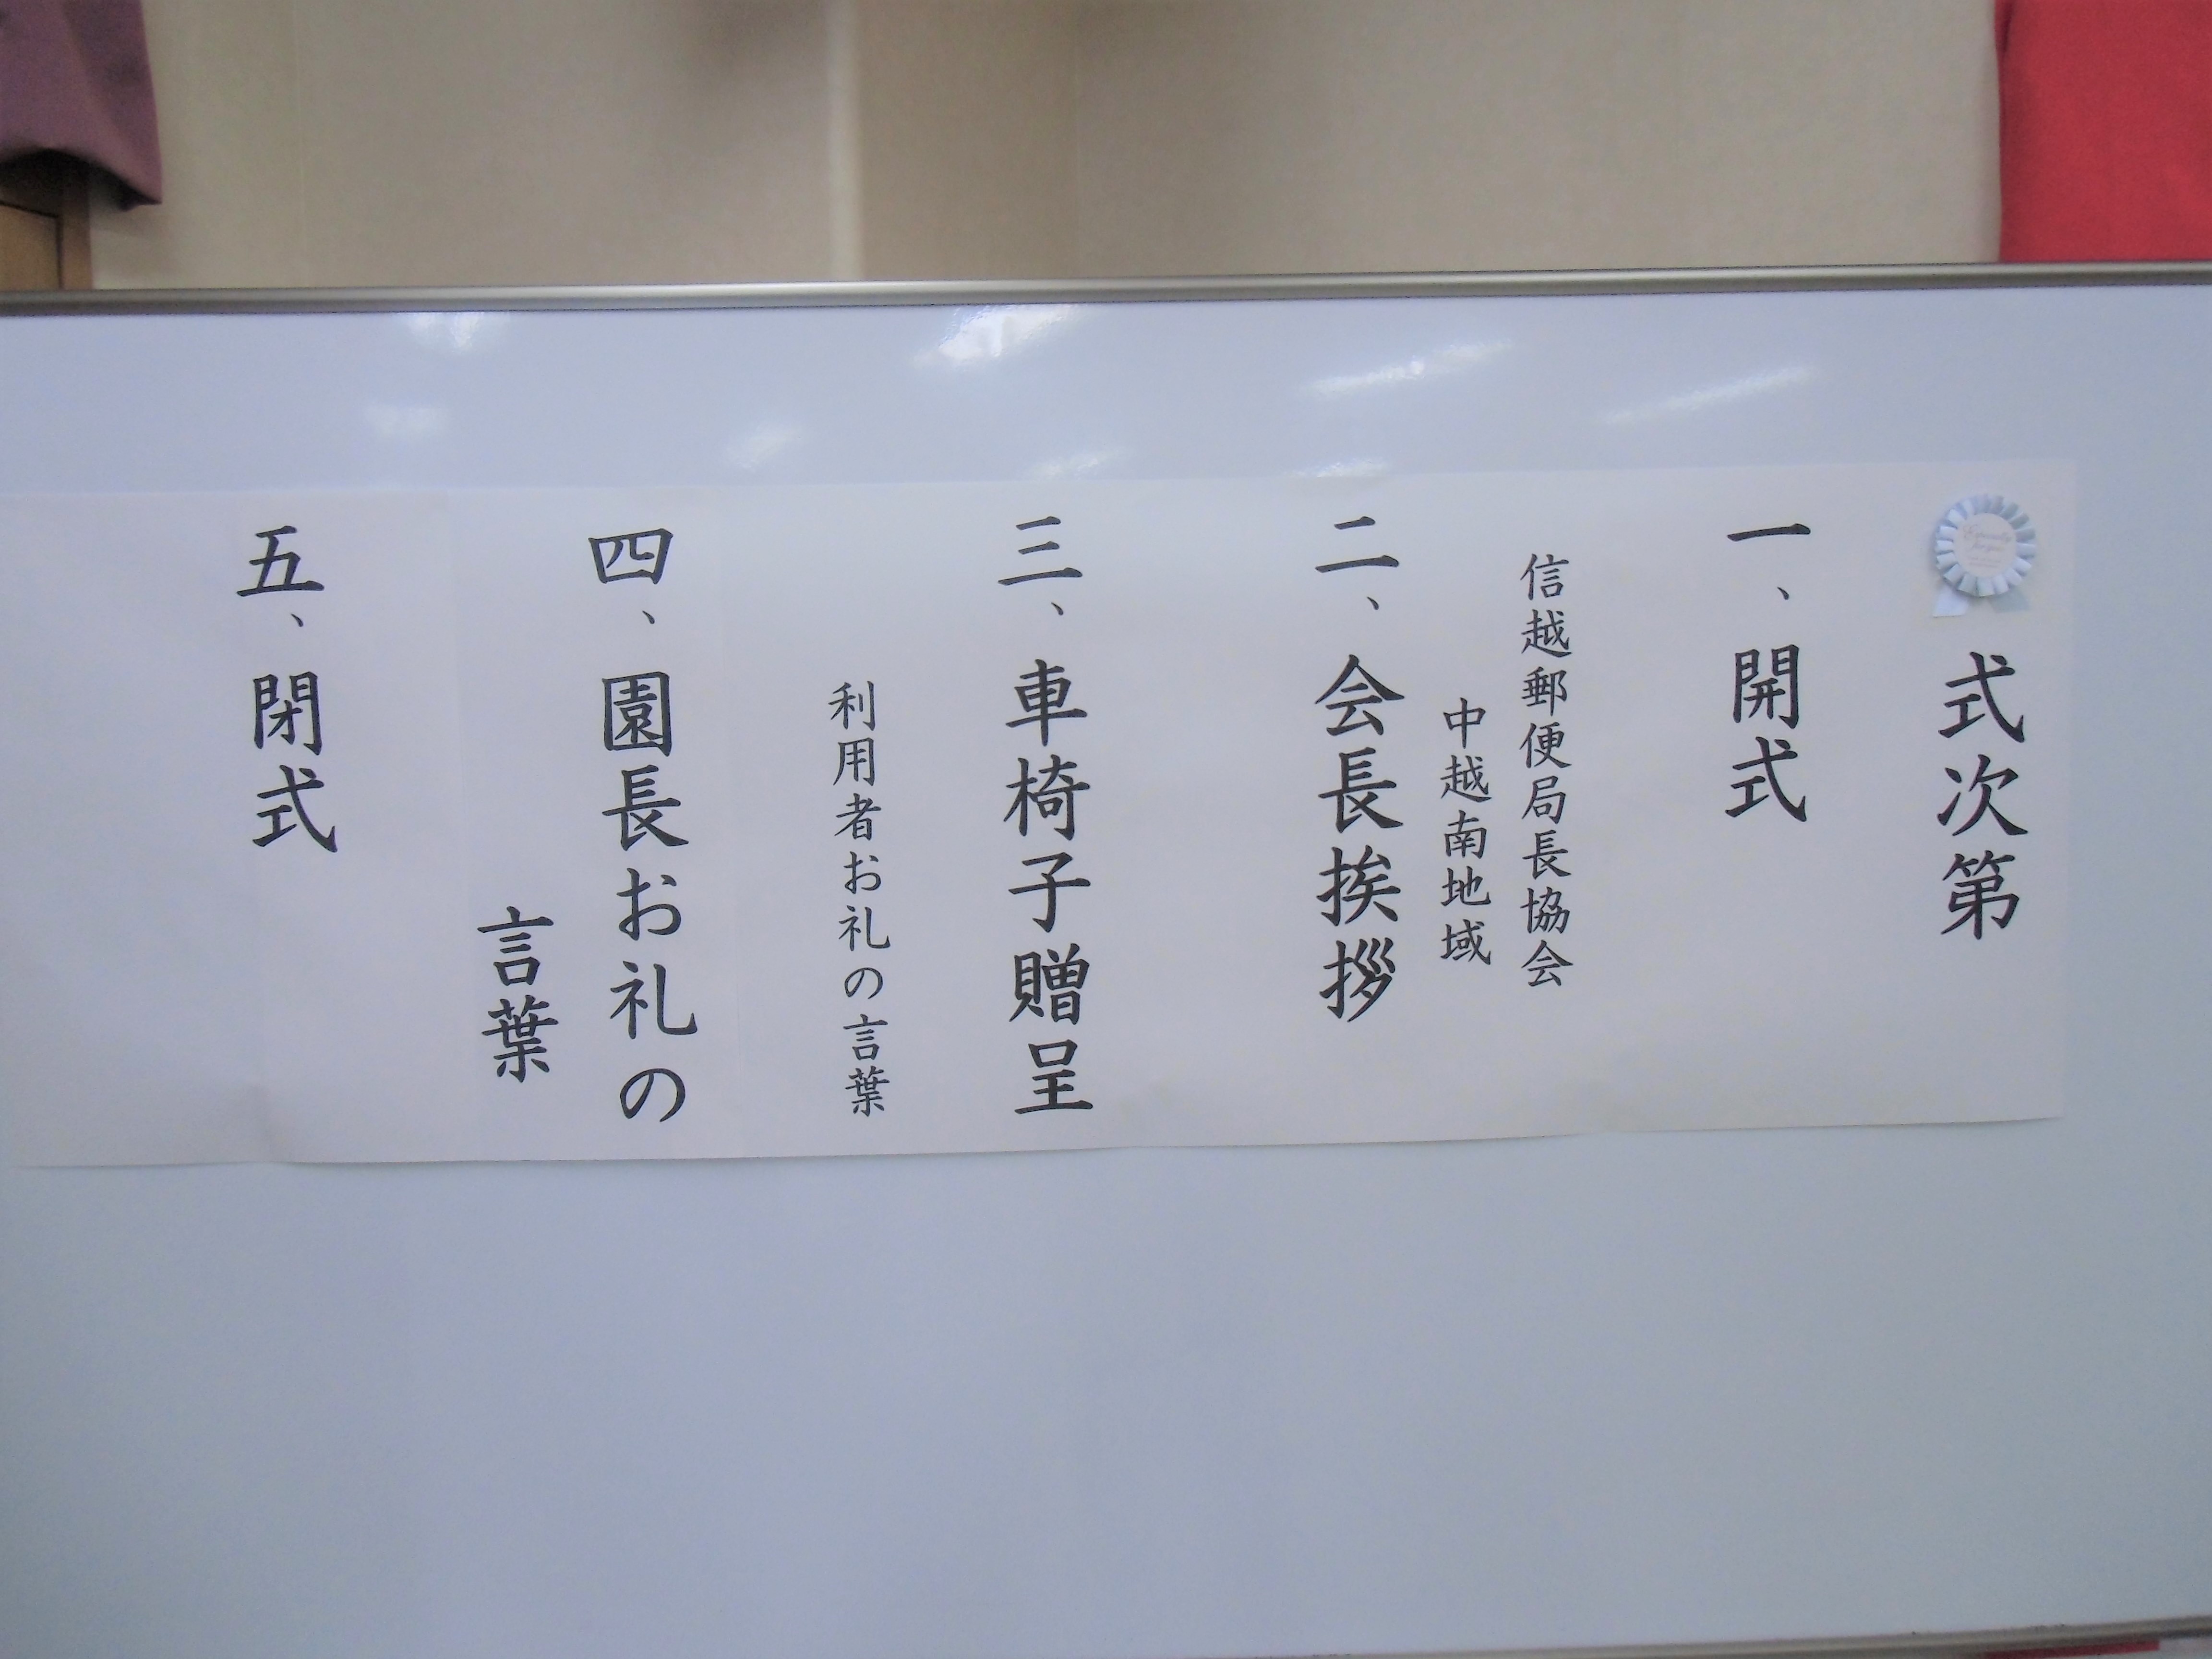 式次第
一、開式
信越郵便局長協会
中越南地域
二、会長挨拶
三、車椅子贈呈
利用者お礼の言葉
四、園長お礼の
言葉
五、閉式